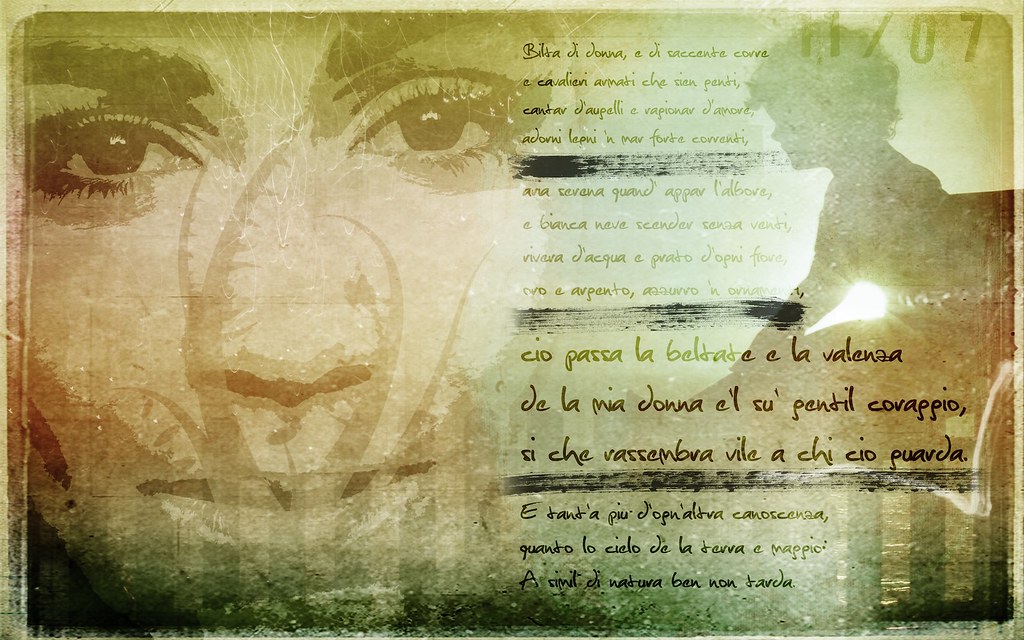 11/07
Bilta di donna, e di saccente corre
e cavalieri armati che sien genti,
cantar d'augelli e ragionar d'amore,
adorni legni 'n mar forte correnti,
aria serena quand' appar l'albore,
e bianca neve scender senza venti,
rivera d'acqua e prato d'ogni fiore,
oro e argento, azzurro 'n ornamenti,
cio passa la beltate e la valenza
de la mia donna e'l su' gentil coraggio,
si che rassembra vile a chi cio guarda.
E tant'a piu d'ogn'altra canoscenza,
quanto lo cielo de la terra e maggio:
A simil di natura ben non tarda.